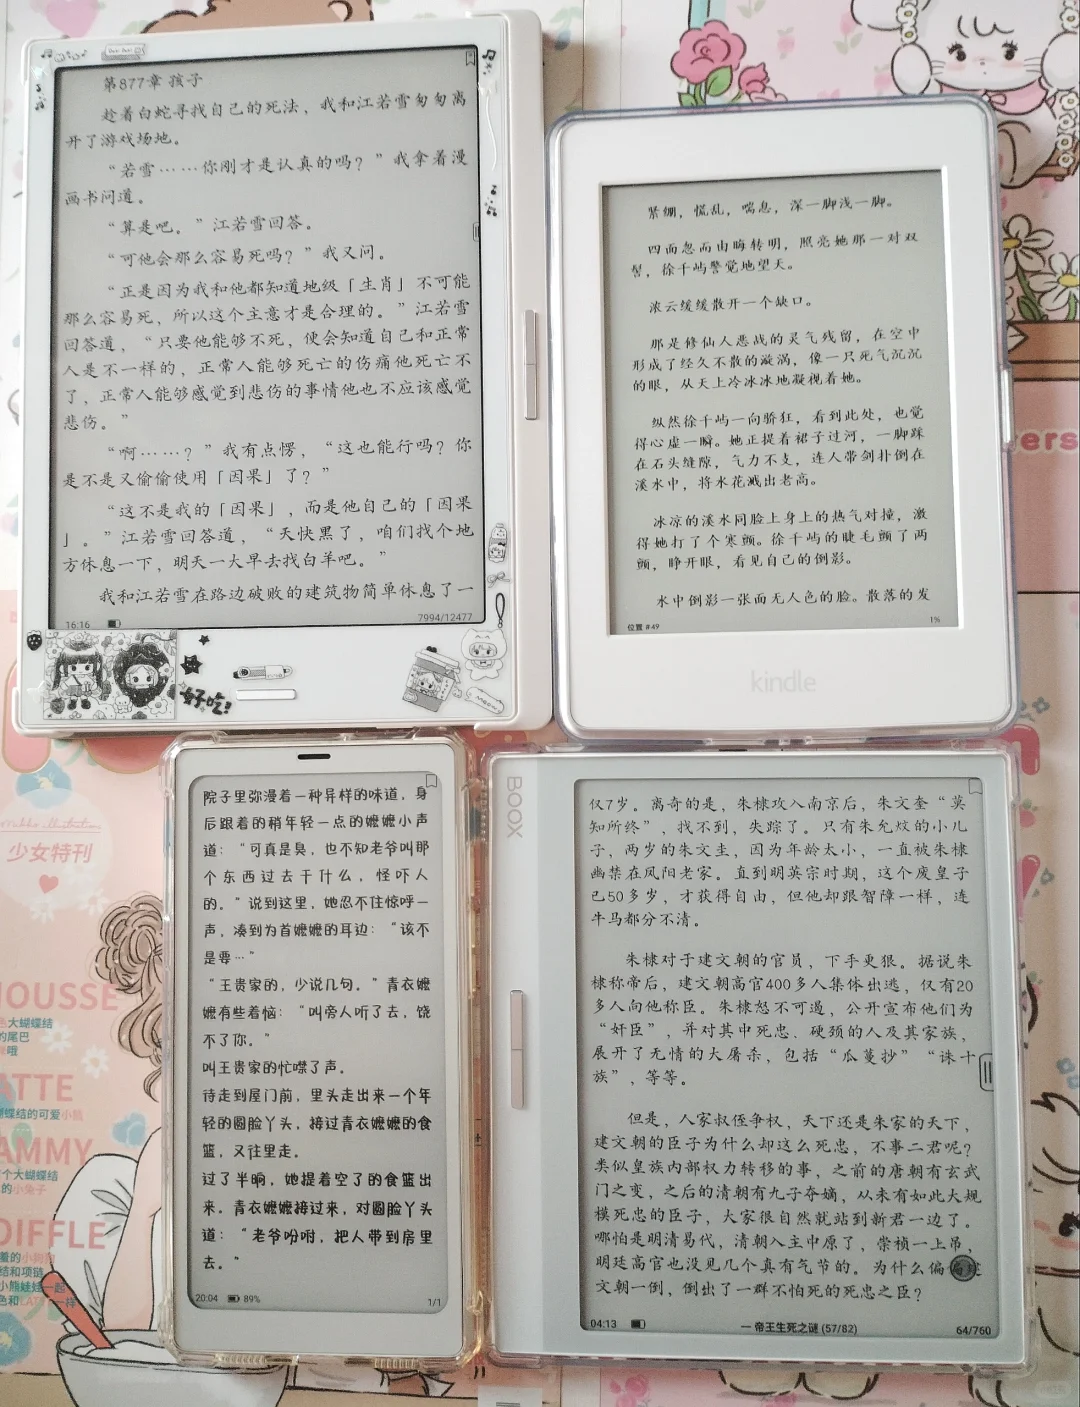 第877章 孩子
趁着白蛇寻找自己的死法，我和江若雪匆匆离
开了游戏场地。
“若雪……你刚才是认真的吗？”我拿着漫
画书问道。
“算是吧。”江若雪回答。
“可他会那么容易死吗？”我又问。
“正是因为我和他都知道地级「生肖」不可能
那么容易死，所以这个主意才是合理的。”江若雪
回答道，“只要他能够不死，便会知道自己和正常
人是不一样的，正常人能够死亡的伤痛他死亡不
了，正常人能够感觉到悲伤的事情他也不应该感觉
悲伤。”
“啊……？”我有点愣，“这也能行吗？你
是不是又偷偷使用「因果」了？”
“这不是我的「因果」，而是他自己的「因果
」。”江若雪回答道，“天快黑了，咱们找个地
方休息一下，明天一大早去找白羊吧。”
我和江若雪在路边破败的建筑物简单休息了一
16:16
7994/12477
好吃!
紧绷，慌乱，喘息，深一脚浅一脚。
四面忽而由晦转明，照亮她那一对双
髻，徐千屿警觉地望天。
浓云缓缓散开一个缺口。
那是修仙人恶战的灵气残留，在空中
形成了经久不散的漩涡，像一只死气沉沉
的眼，从天上冷冰冰地凝视着她。
纵然徐千屿一向骄狂，看到此处，也觉
得心虚一瞬。她正提着裙子过河，一脚踩
在石头缝隙，气力不支，连人带剑扑倒在
溪水中，将水花溅出老高。
冰凉的溪水同脸上身上的热气对撞，激
得她打了个寒颤。徐千屿的睫毛颤了两
颤，睁开眼，看见自己的倒影。
水中倒影一张面无人色的脸。散落的发
位置 #49
1%
kindle
院子里弥漫着一种异样的味道，身
后跟着的稍年轻一点的嬷嬷小声
道：“可真是臭，也不知老爷叫那
个东西过去干什么，怪吓人
的。”说到这里，她忍不住惊呼一
声，凑到为首嬷嬷的耳边：“该不
是要…”
“王贵家的，少说几句。”青衣嬷
嬷有些着恼：“叫旁人听了去，饶
不了你。”
叫王贵家的忙噤了声。
待走到屋门前，里头走出来一个年
轻的圆脸丫头，接过青衣嬷嬷的食
篮，又往里走。
过了半晌，她提着空了的食篮出
来，青衣嬷嬷接过来，对圆脸丫头
道：“老爷吩咐，把人带到房里
去。”
20:04
89%
1/1
BOOX
仅7岁。离奇的是，朱棣攻入南京后，朱文奎“莫
知所终”，找不到，失踪了。只有朱允炆的小儿
子，两岁的朱文圭，因为年龄太小，一直被朱棣
幽禁在凤阳老家。直到明英宗时期，这个废皇子
已50多岁，才获得自由，但他却跟智障一样，连
牛马都分不清。
朱棣对于建文朝的官员，下手更狠。据说朱
棣称帝后，建文朝高官400多人集体出逃，仅有20
多人向他称臣。朱棣怒不可遏，公开宣布他们为
“奸臣”，并对其中死忠、硬颈的人及其家族，
展开了无情的大屠杀，包括“瓜蔓抄”“诛十
族”，等等。
但是，人家叔侄争权，天下还是朱家的天下，
建文朝的臣子为什么却这么死忠，不事二君呢？
类似皇族内部权力转移的事，之前的唐朝有玄武
门之变，之后的清朝有九子夺嫡，从未有如此大规
模死忠的臣子，大家很自然就站到新君一边了。
哪怕是明清易代，清朝入主中原了，崇祯一上吊，
明廷高官也没见几个真有气节的。为什么偏偏建
文朝一倒，倒出了一群不怕死的死忠之臣？
04:13
一 帝王生死之谜 (57/82)
64/760
少女特刊
MOUSSE
色大蝴蝶结
的尾巴
哦
ATTE
蝴蝶结的可爱小熊
AMMY
个大蝴蝶结
的小兔子
OIFFLE
羞的小狗狗
结和项链
小熊娃娃一起